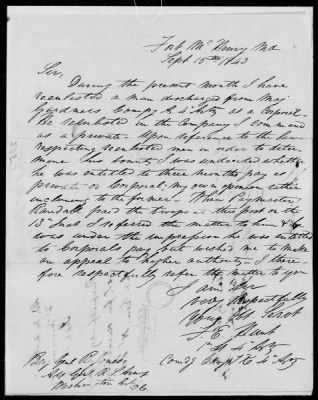 Fort McHenry Md
Sept 15th 1843
Sir,
During the present month I have
reenlisted a man discharged from Maj
Gardners Compy K. 4th Arty as a Corporal.
He reenlisted in the Company I command
as a private. Upon reference to the law
respecting reenlisted men in order to deter-
mine his bounty I was undecided whether
he was entitled to three months pay as
private or Corporal; my own opinion rather
inclining to the former. When Paymaster
Randall paid the troops at this post on the
13th Inst I referred the matter to him & he
was under the impression he was entitled
to Corporals pay but wished me to make
an appeal to higher authority. I there-
fore respectfully refer the matter to you
I am Sir
very respectfully
Your Obt Servt
1st 4th Arty
Comdg Compy 4th Arty
Genl R. Jones
Adjt Genl U. S. Army
Washington City
D.C.